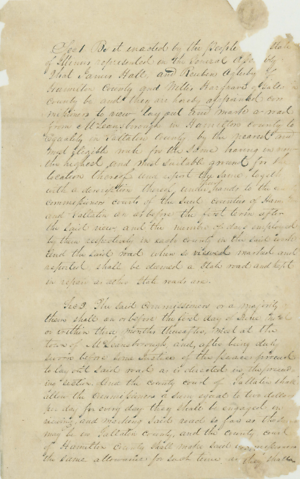 Sec 1 Be it enacted by the People State
of Illinois represented in the General Assembly
That James Hall, and Reuben
Hamilton County and Willis Hargrave, Gallatin
County be and they are hereby appointed com
missioners to view lay out and mark a road
from McLeansborough in Hamilton County to
Equality in Gallatin County by the nearest and
most eligible route for the same having in view
the highest and most suitable ground for the
location thereof and report the same together
with a description thereof under hands to the
commissioners courts of the said counties of Ham
and Gallatin on or before the first term after
the said view and the number of days employed
by them respectively in each county in the said work
And the said road when so viewed marked and
reported shall be deemed a State road and kept
in repair as other State roads are.
Sec 2 The said Commissioners or a majority
them shall on or before the first day of June
or within three months thereafter, meet at the
town of McLeansborough and, after being duly
sworn before some Justice of the peace proceed
to lay out said road as is directed in the foregoing
section. And the county court of Gallatin shall
allow the Commissioners a sum equal to two dollars
per day for every day they shall be engaged in
viewing and marking said road so far as the
may be in Gallatin county, and the county court
of Hamilton County shall make said commissioners
the same allowance for such time as they shall